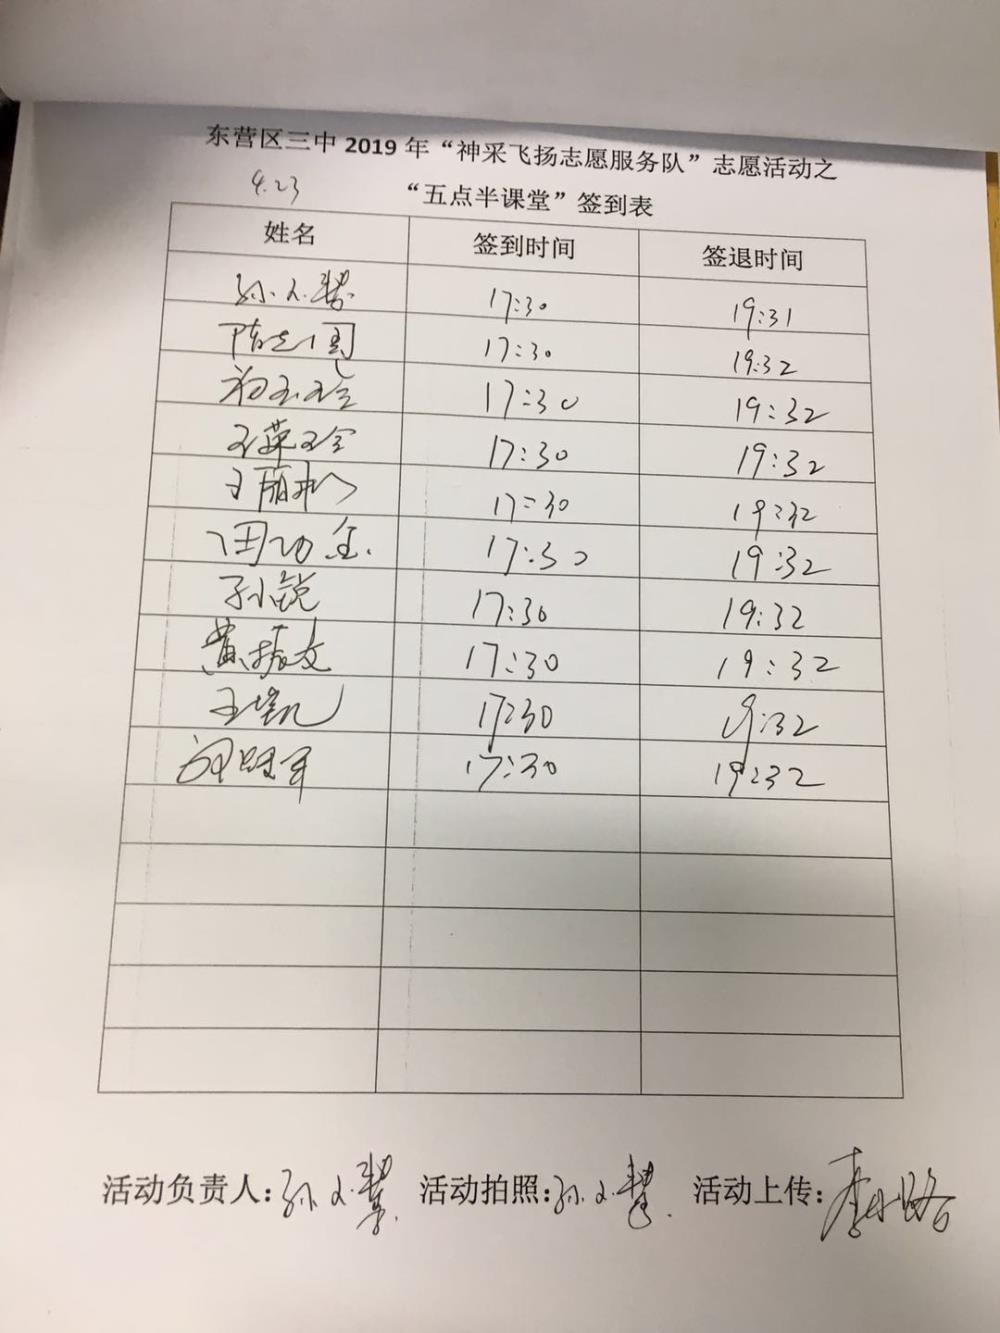 东营区三中 2019 年“神采飞扬志愿服务队”志愿活动之
4.23
“五点半课堂”签到表
姓名 签到时间 签退时间
孙文慧 17:30 19:31
陈志国 17:30 19:32
17:30 19:32
王英玲 17:30 19:32
王丽 17:30 19:32
田功全 17:30 19:32
孙锐 17:30 19:32
黄振文 17:30 19:32
王凯 17:30 19:32
17:30 19:32
活动负责人:孙文慧 活动拍照:孙文慧 活动上传:李